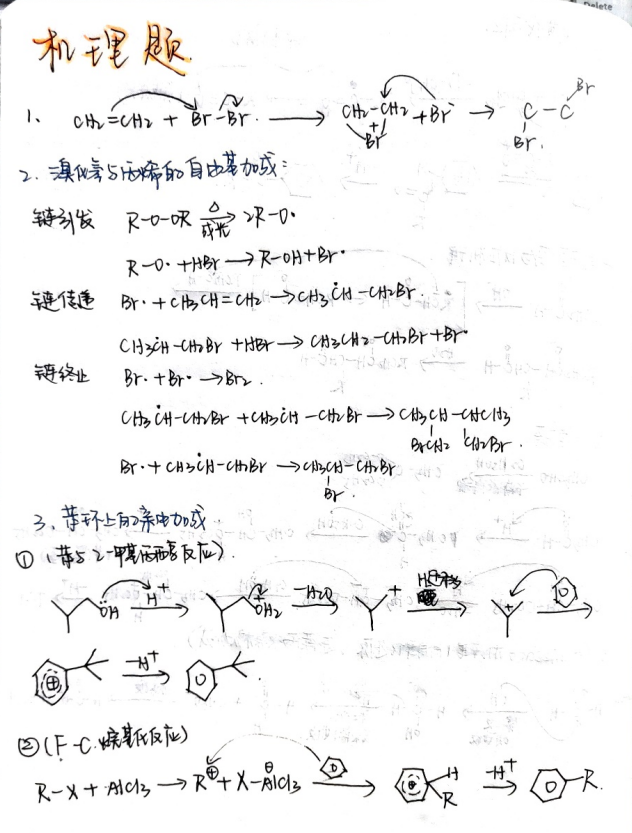 Delete
机理题
1、 CH2=CH2 + Br-Br. → CH2-CH2 + Br⁻ → C-C Br
Br⁺ Br.
2、溴化氢与丙烯的自由基加成:
链引发 R-O-OR △ 或光 → 2R-O·
R-O· + HBr → R-OH + Br·
链传递 Br· + CH3CH=CH2 → CH3ĊH-CH2Br.
CH3ĊH-CH2Br + HBr → CH3CH2-CH2Br + Br·
链终止 Br· + Br· → Br2.
CH3ĊH-CH2Br + CH3ĊH-CH2Br → CH3CH-CHCH3
BrCH2 CH2Br.
Br· + CH3ĊH-CH2Br → CH3CH-CH2Br
Br.
3、苯环上的亲电加成
① (苯与2-甲基丙醇反应).
ÖH H⁺ → ⁺OH2 -H2O → + H⁻移 → + →
-H⁺ →
② (F-C.烷基化反应)
R-X + AlCl3 → R⊕ + X-AlCl3 ⊖ → H R -H⁺ → R.